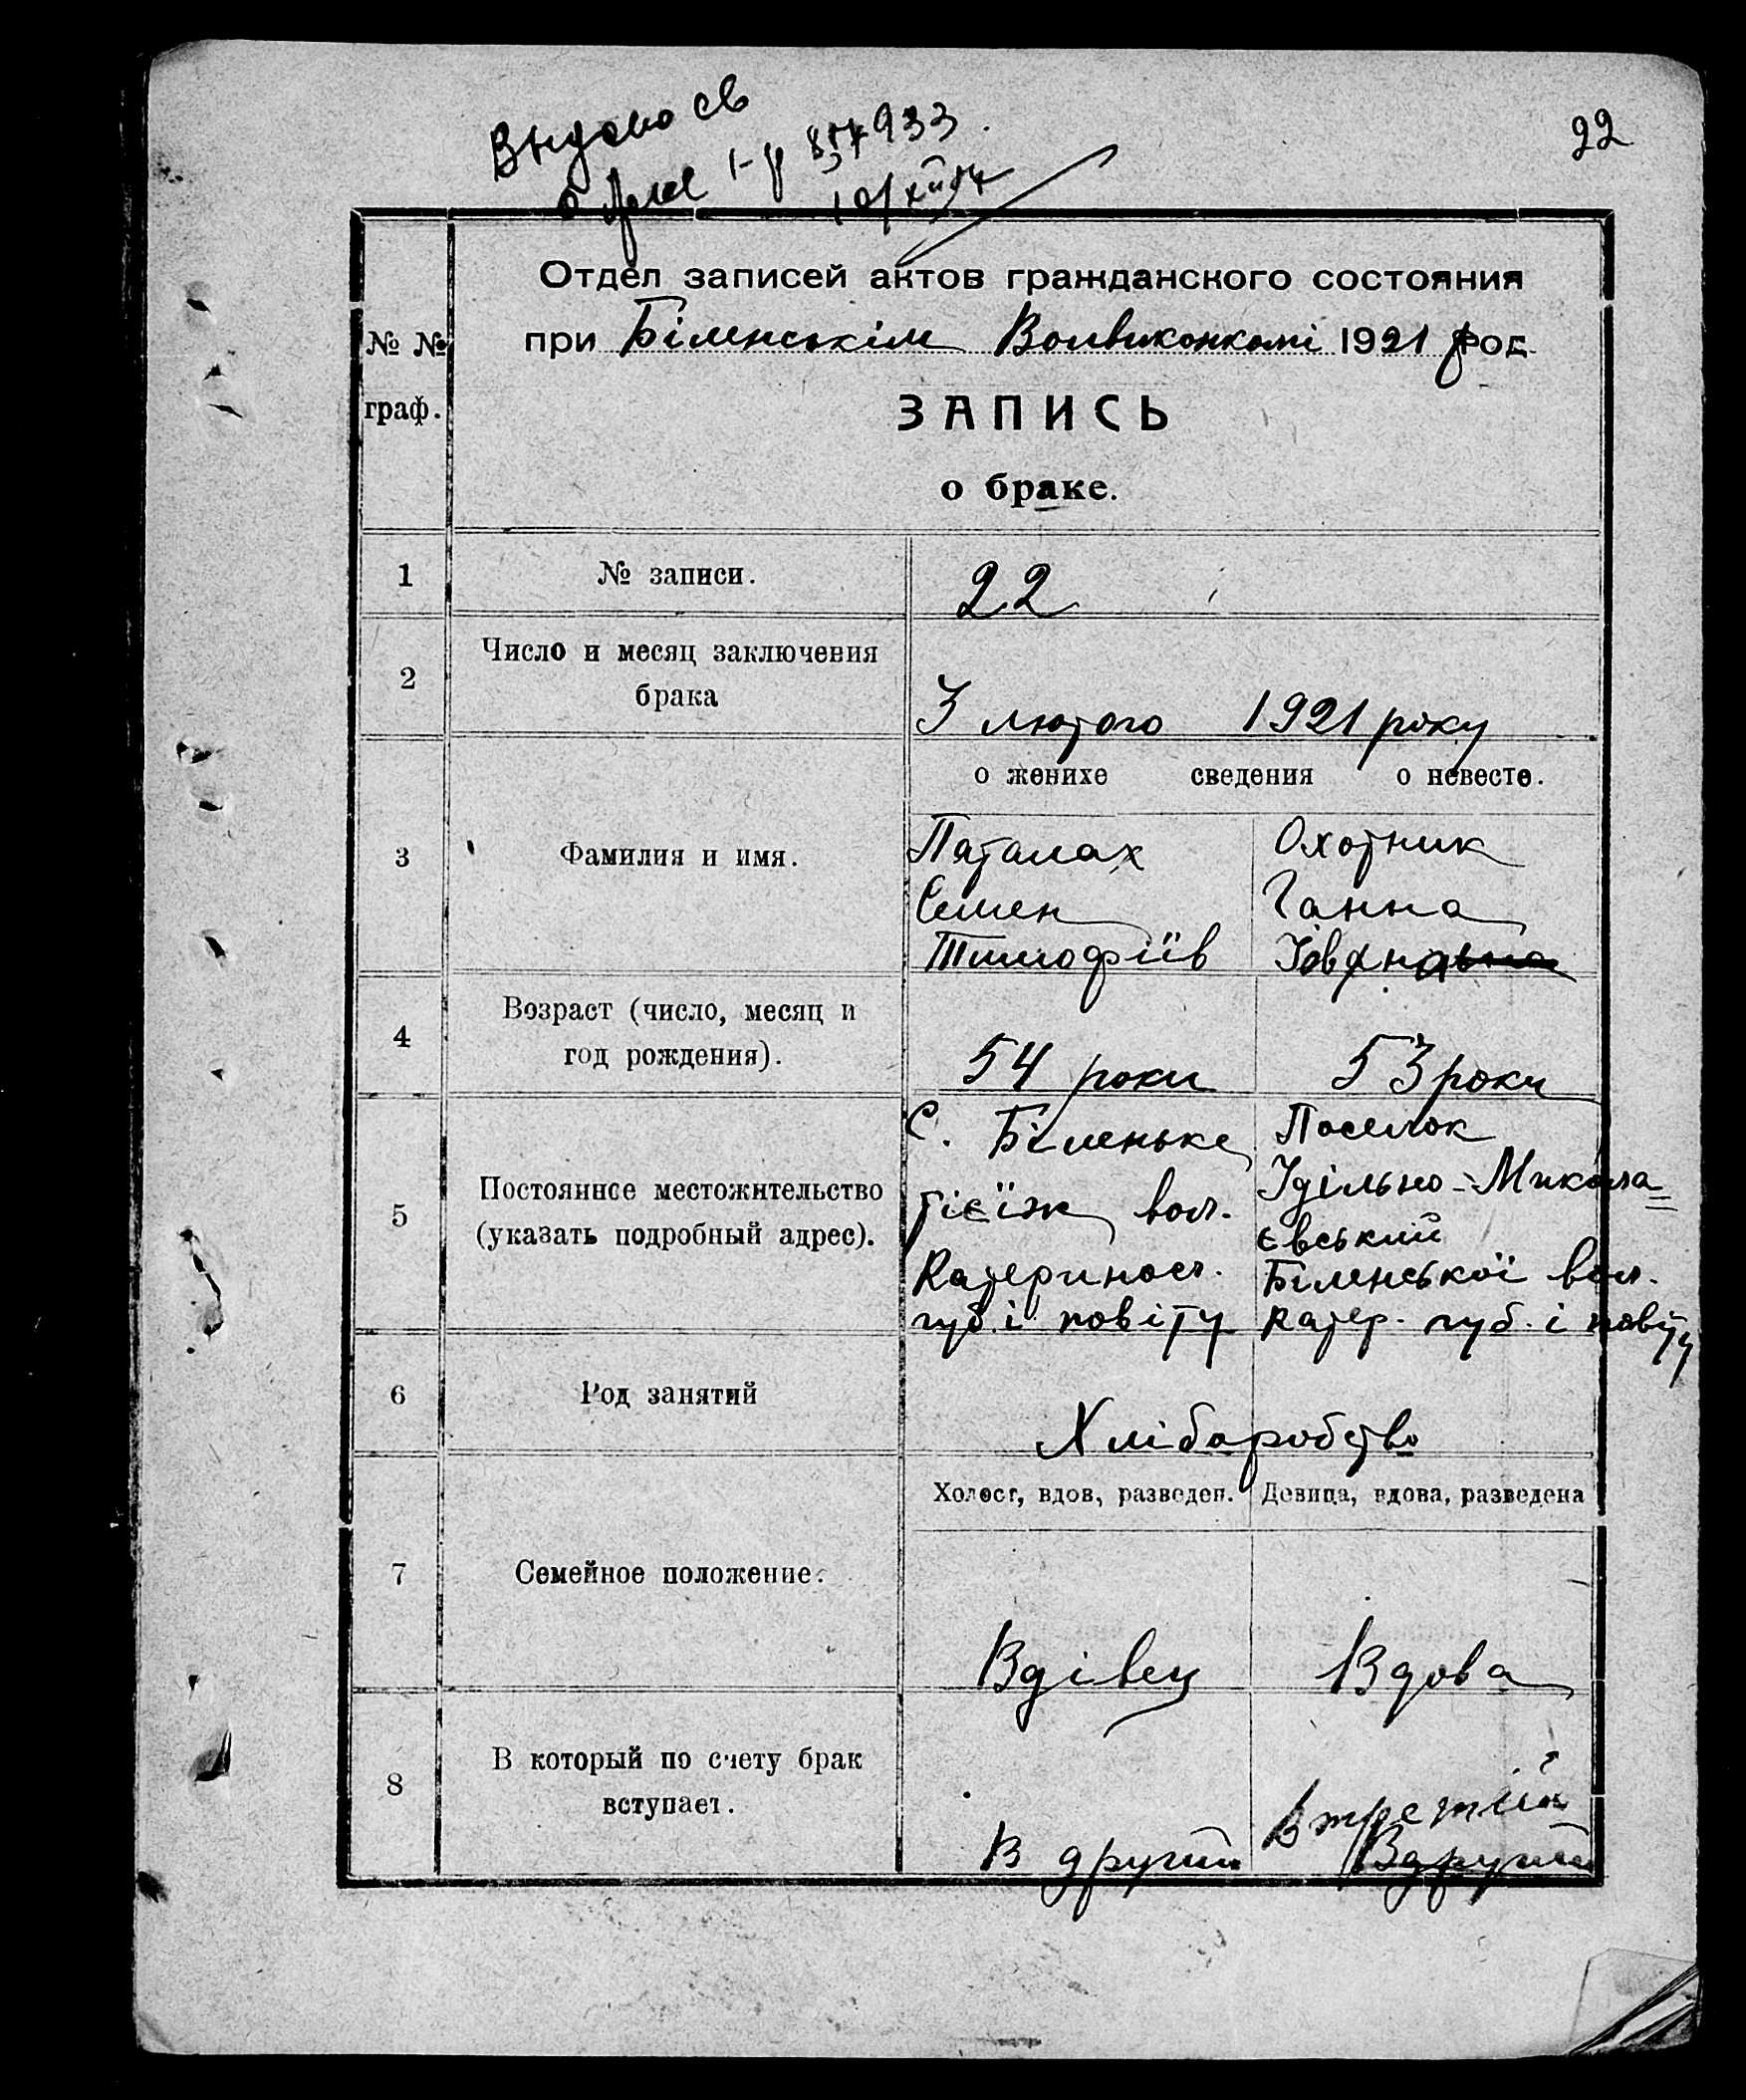 Выдано св
о браке 1-У 857933
10/XII 54
22
Отдел записей актов гражданского состояния
при Біленськім Волвиконкомі 1921 год
№ №
граф.
ЗАПИСЬ
о браке.
1 № записи. 22
2 Число и месяц заключения
брака
3 лютого 1921 року
о женихе сведения о невесте.
3 Фамилия и имя.
Паталах Охотник
Семен Ганна
Тимофіїв
4 Возраст (число, месяц и
год рождения).
54 роки 53 роки
5 Постоянное местожительство
(указать подробный адрес).
с. Біленьке Поселок
тієїж вол. Удільно-Микола=
євський
Катеринос. Біленської вол.
губ. і повіту Катер. губ. і повіту
6 Род занятий
Хліборобство
Холост, вдов, разведен. Девица, вдова, разведена
7 Семейное положение.
Вдівец Вдова
8 В который по счету брак
вступает.
В третий
В другий В другий